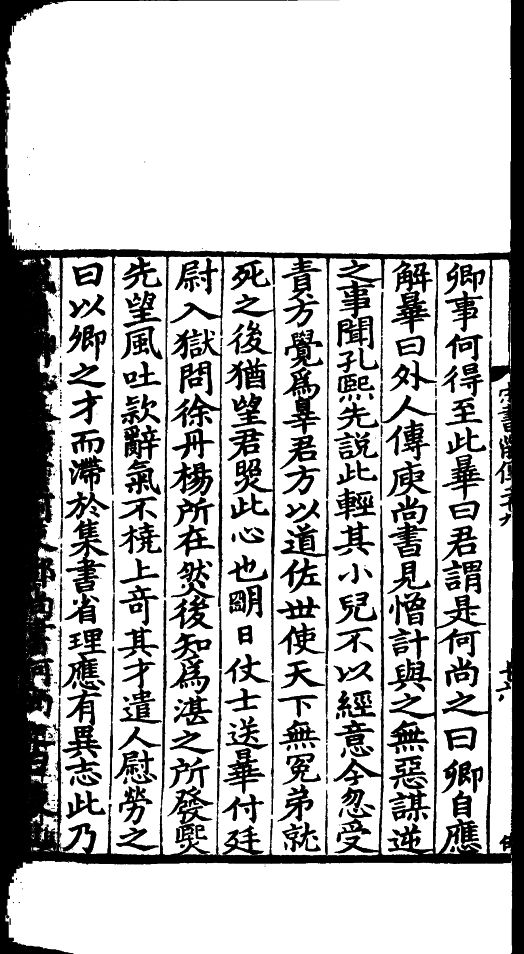 卿事何得至此曅曰君謂是何尚之曰卿自應
解曅曰外人傳庾尚書見憎計與之無惡謀逆
之事聞孔熙先說此輕其小兒不以經意今忽受
責方覺為辠君方以道佐世使天下無冤弟就
死之後猶望君照此心也明日仗士送曅付廷
尉入獄問徐丹楊所在然後知為湛之所發熙
先望風吐款辭氣不橈上奇其才遣人慰勞之
曰以卿之才而滯於集書省理應有異志此乃